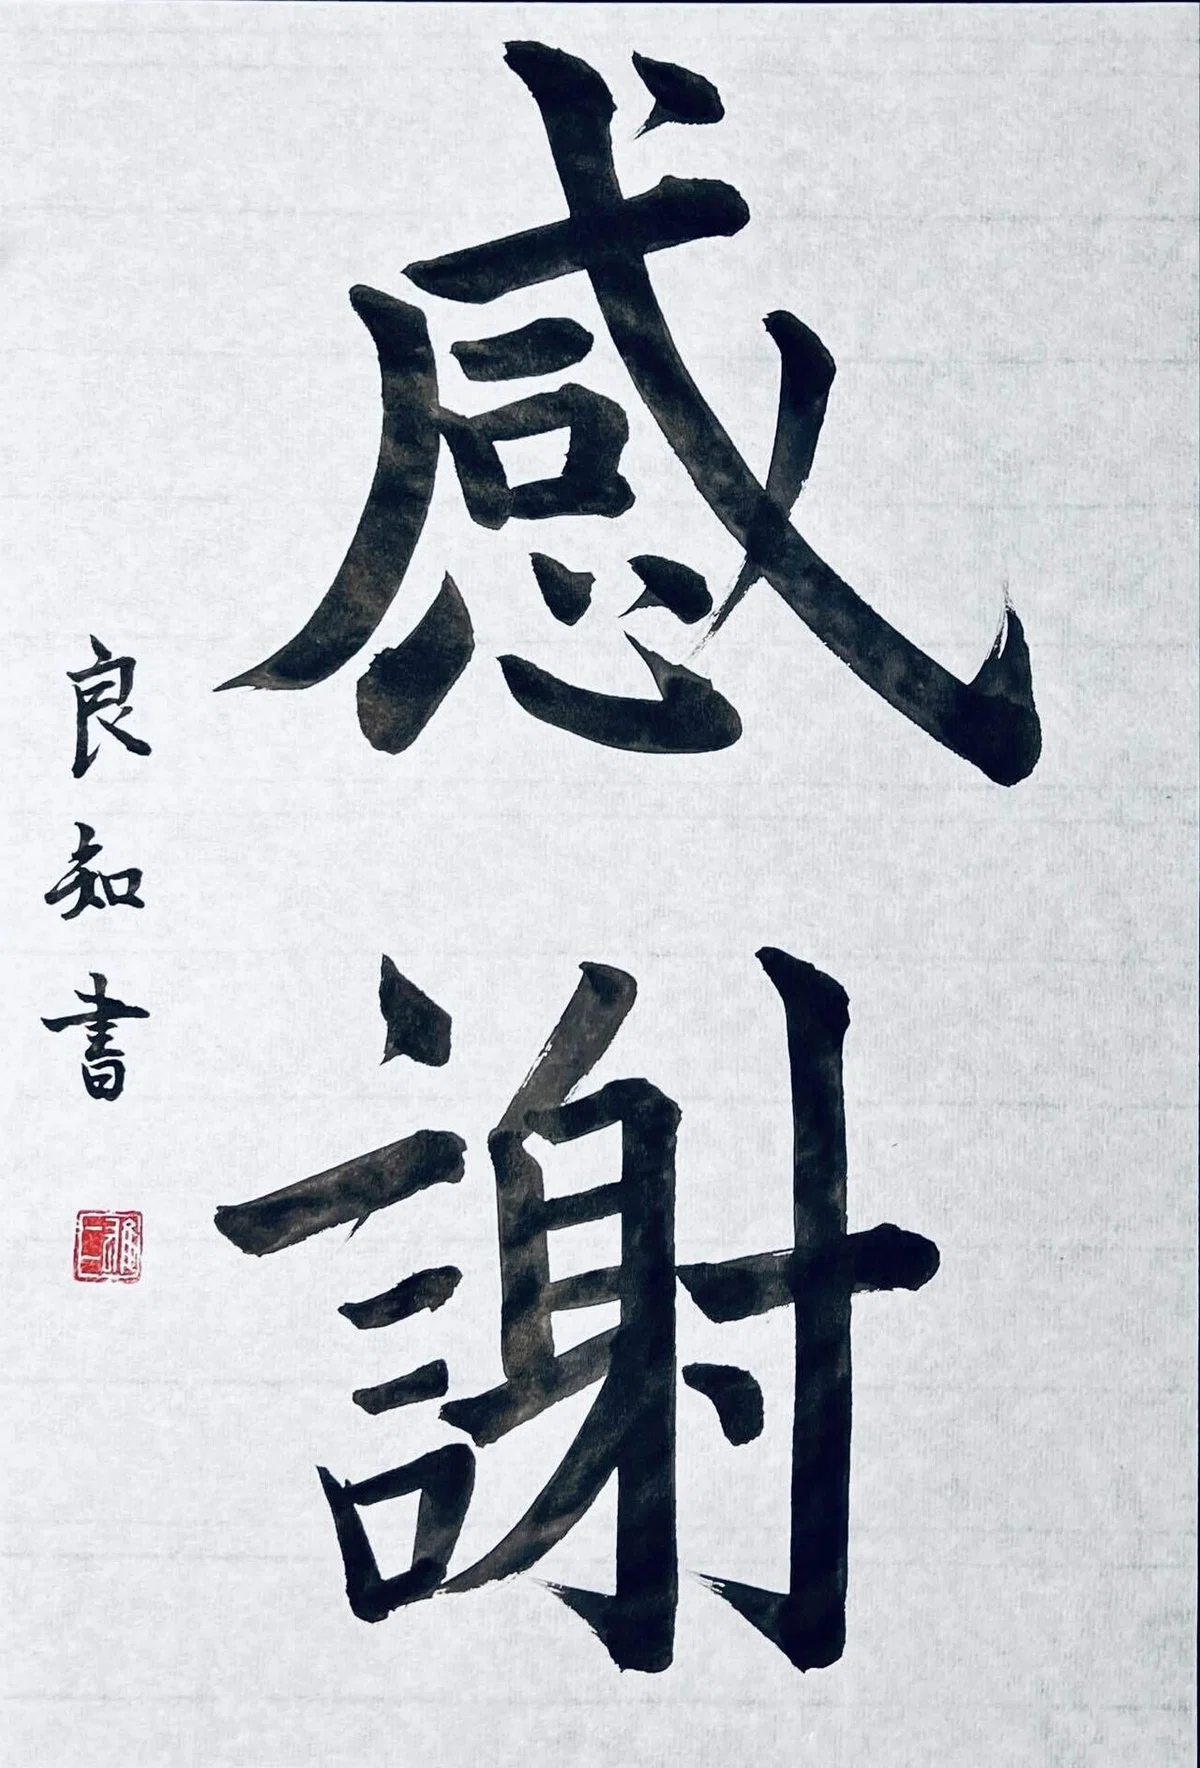 感謝
良知書